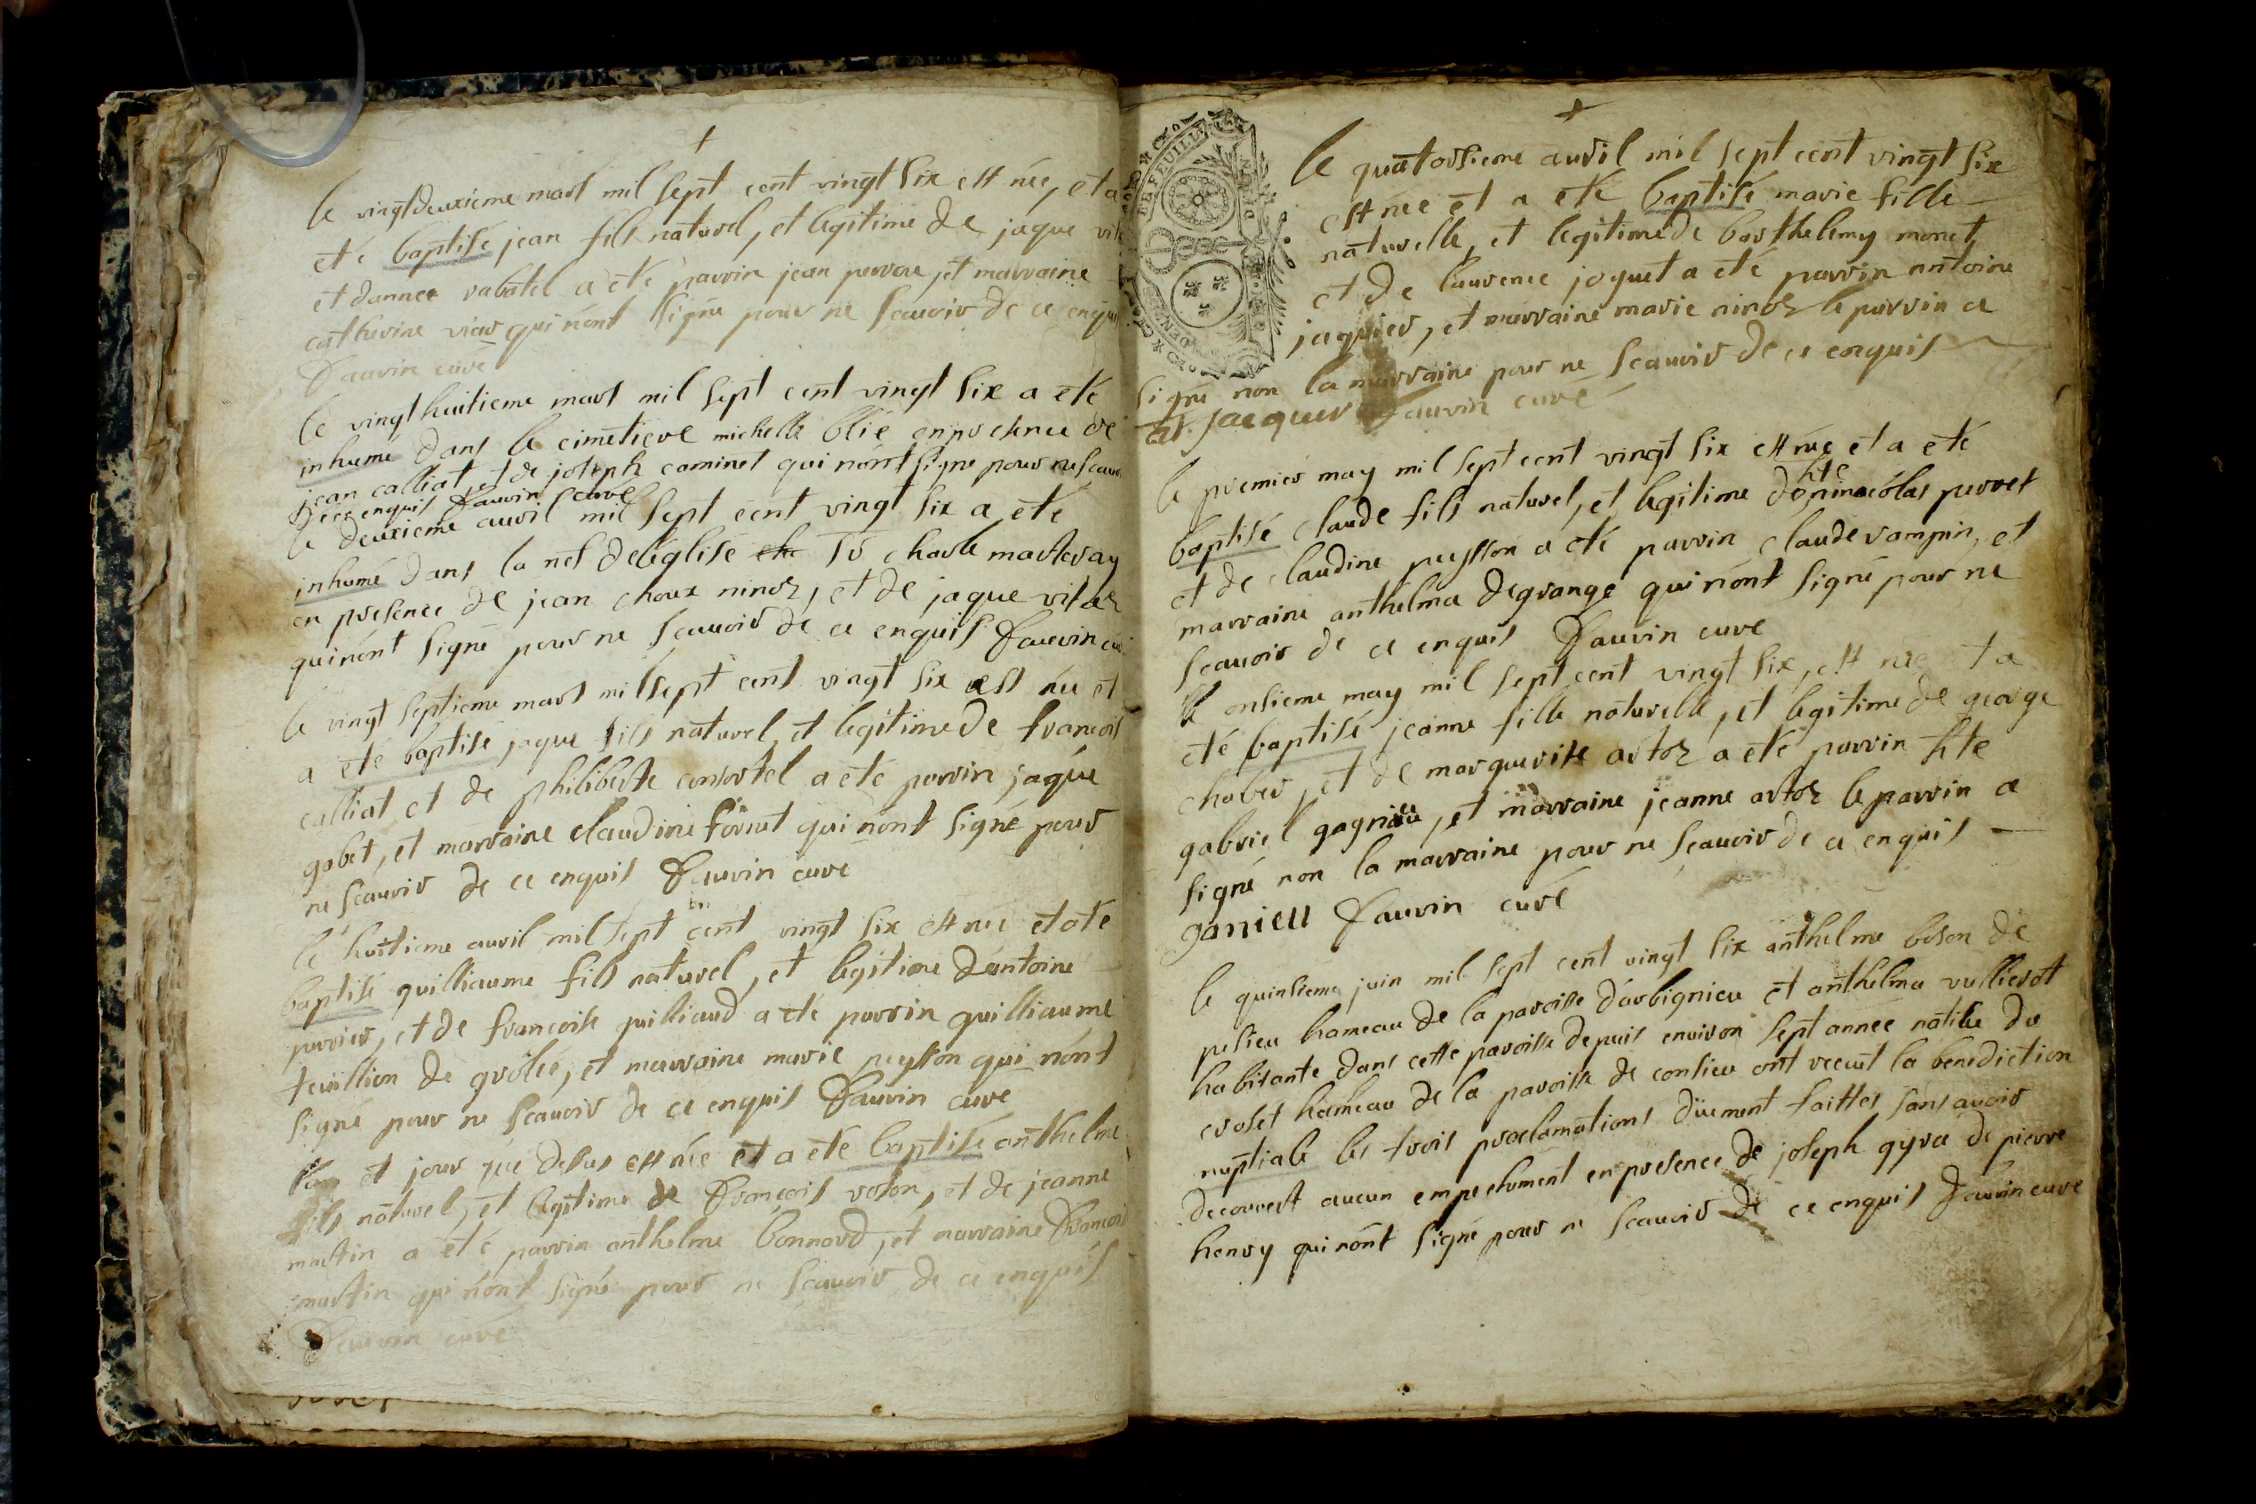 +
le vingtdeuxieme mars mil sept cent vingt six est née, et a
eté baptisé jean fils naturel, et legitime de jaque
et dannee rabatel a eté parrin jean perron, et marraine
catherine viar qui nont signé pour ne scauoir de ce enquis
fauvin curé
le vingt huitieme mars mil sept cent vingt six a eté
inhumé dans le cimetiere michelle blie en presence de
jean calliat, et de joseph caminet qui nont signe pour ne scauoir
de ce enquis fauvin curé
le deuxieme auril mil sept cent vingt six a eté
inhumé dans la nef de léglise Sr charle marteray
en presence de jean choux ninoz, et de jaque vitoz
qui nont signé pour ne scauoir de ce enquis fauvin curé
le vingt septieme mars mil sept cent vingt six est née et
a eté baptisé jaque fils naturel et legitime de francois
calliat et de philiberte consortel a eté parrin jaque
gobet, et marraine claudine forint qui nont signé pour
ne scauoir de ce enquis fauvin curé
le huitieme auril mil sept cent vingt six est née et ote
baptisé guilliaume fils naturel, et legitime dantoine
perrier, et de francoise guilliaud a eté parrin guilliaume
teuillion de grolée, et marraine marie peysson qui nont
signé pour ne scauoir de ce enquis fauvin curé
lan et jour que desus est née et a eté baptisé anthelme
fils naturel, et legitime de francois voson, et de jeanne
martin a eté parrin anthelme bonnard, et marraine francois
martin qui nont signé pour ne scauoir de ce enquis
fauvin curé
+
BELFEUILLE
le quatorsieme auril mil sept cent vingt six
est née et a eté baptisé marie fille
naturelle, et legitime de barthelemy monet
et de laurence joquet a eté parrin antoine
jaquier, et marraine marie ninoz le parrin a
signé non la marraine pour ne scauoir de ce enquis
at. jacquer fauvin curé
le premier may mil sept cent vingt six est née et a eté
baptisé claude fils naturel, et legitime dhte nicolas perret
et de claudine peysson a eté parrin claude rampin, et
marraine anthelma degrange qui nont signé pour ne
scauoir de ce enquis fauvin curé
le onsieme may mil sept cent vingt six, est née et a
eté baptisé jeanne fille naturelle, et legitime de george
chaber, et de marguerite artoz a eté parrin hte
gabriel gagnieu, et marraine jeanne artoz le parrin a
signé non la marraine pour ne scauoir de ce enquis
ganieu fauvin curé
le quinsieme juin mil sept cent vingt six anthelme boson de
pelieu hameau de la paroisse darbignieu et anthelma vullierot
habitante dans cette paroisse depuis environ sept année natiue du
croset hameau de la paroisse de conlieu ont receut la benediction
nuptiale les trois proclamations düement faittes sans auoir
decouvert aucun empechement en presence de joseph gyra de pierre
henry qui nont signé pour ne scauoir de ce enquis fauvin curé